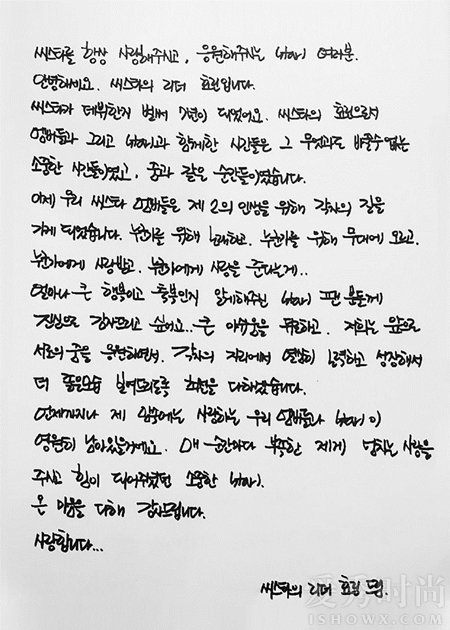 씨스타를 항상 사랑해주시고, 응원해주시는 STAR1 여러분.
안녕하세요. 씨스타의 리더 효린입니다.
씨스타가 데뷔한지 벌써 7년이 되었어요. 씨스타의 효린으로서
멤버들과 그리고 STAR1과 함께한 시간들은 그 무엇과도 바꿀수 없는
소중한 시간들이였고, 꿈과 같은 순간들이였습니다.
이제 우리 씨스타 멤버들은 제 2의 인생을 위해 각자의 길을
가게 되었습니다. 누군가를 위해 노래하고. 누군가를 위해 무대에 오르고.
누군가에게 사랑받고. 누군가에게 사랑을 준다는게..
얼마나 큰 행복이고 축복인지 알게해주신 STAR1 팬 분들께
진심으로 감사드리고 싶어요.. 큰 아쉬움을 뒤로하고. 저희는 앞으로
서로의 꿈을 응원하면서. 각자의 자리에서 열심히 노력하고 성장해서
더 좋은모습 보여드리도록 최선을 다하겠습니다.
언제까지나 제 맘속에는 사랑하는 우리 멤버들과 STAR1이
영원히 남아있을거에요. 매 순간마다 부족한 제게 넘치는 사랑을
주시고 힘이 되어주셨던 소중한 STAR1.
온 마음을 다해 감사드립니다.
사랑합니다...
씨스타의 리더 효린 드림.
爱秀时尚
ISHOWX.COM